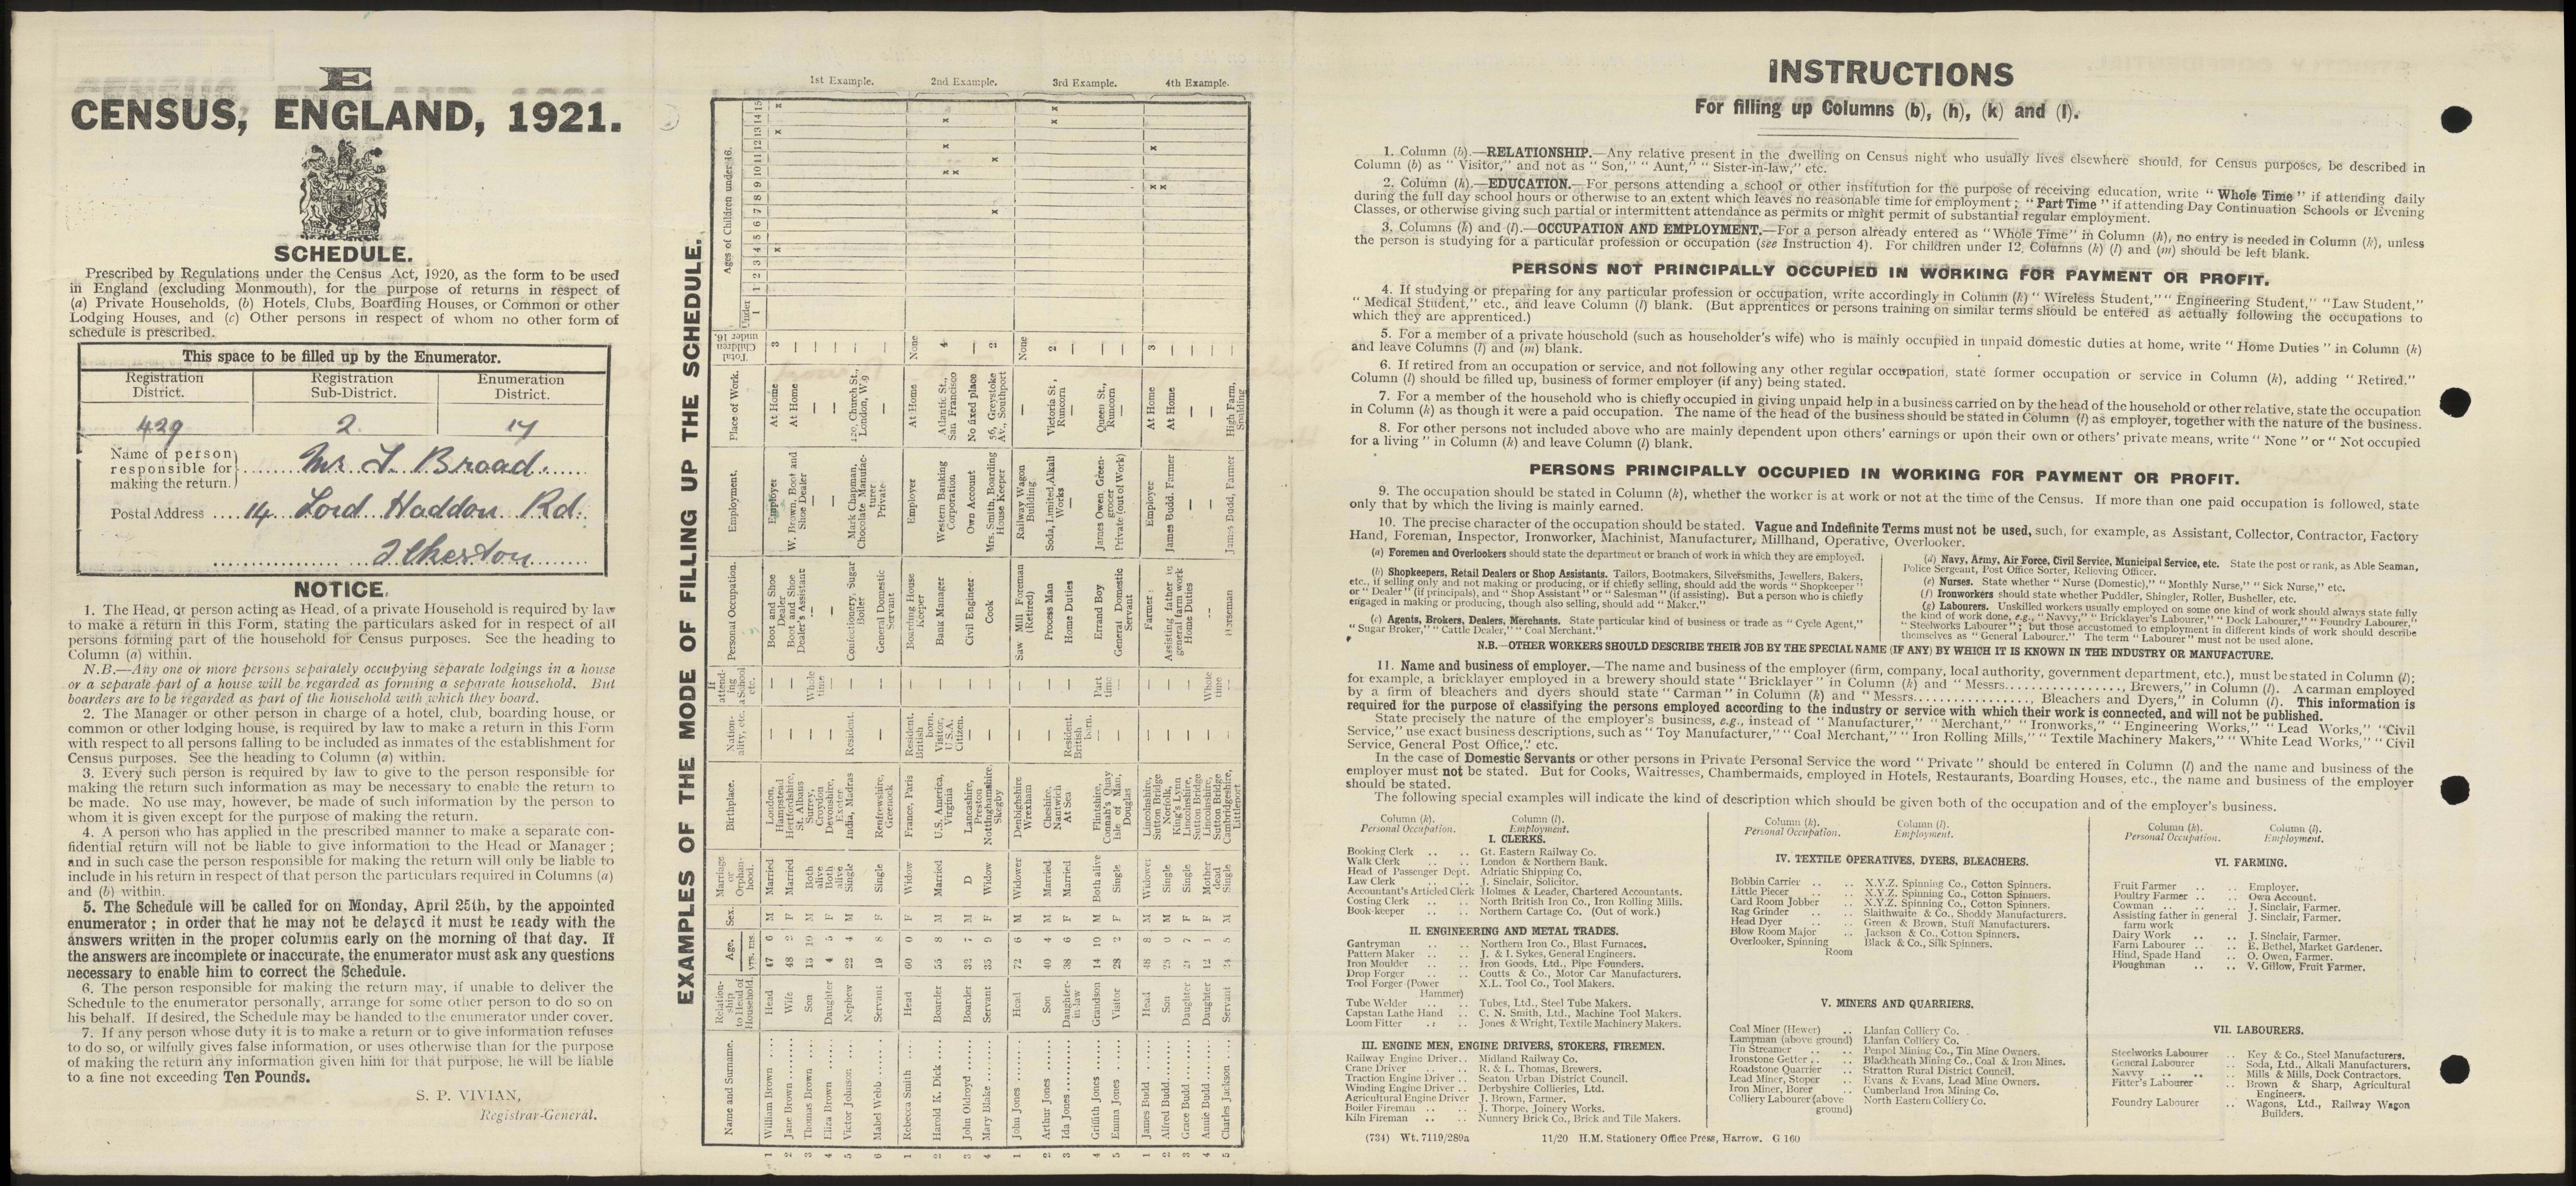 E
CENSUS, ENGLAND, 1921.
SCHEDULE.
Prescribed by Regulations under the Census Act, 1920, as the form to be used
in England (excluding Monmouth), for the purpose of returns in respect of
(a) Private Households, (b) Hotels, Clubs, Boarding Houses, or Common or other
Lodging Houses, and (c) Other persons in respect of whom no other form of
schedule is prescribed.
This space to be filled up by the Enumerator.
Registration District. Registration Sub-District. Enumeration District.
429 2 17
Name of person responsible for making the return. Mr. T. Broad.
Postal Address 14 Lord Haddon Rd.
Ilkeston
NOTICE.
1. The Head, or person acting as Head, of a private Household is required by law
to make a return in this Form, stating the particulars asked for in respect of all
persons forming part of the household for Census purposes. See the heading to
Column (a) within.
N.B.—Any one or more persons separately occupying separate lodgings in a house
or a separate part of a house will be regarded as forming a separate household. But
boarders are to be regarded as part of the household with which they board.
2. The Manager or other person in charge of a hotel, club, boarding house, or
common or other lodging house, is required by law to make a return in this Form
with respect to all persons falling to be included as inmates of the establishment for
Census purposes. See the heading to Column (a) within.
3. Every such person is required by law to give to the person responsible for
making the return such information as may be necessary to enable the return to
be made. No use may, however, be made of such information by the person to
whom it is given except for the purpose of making the return.
4. A person who has applied in the prescribed manner to make a separate con-
fidential return will not be liable to give information to the Head or Manager;
and in such case the person responsible for making the return will only be liable to
include in his return in respect of that person the particulars required in Columns (a)
and (b) within.
5. The Schedule will be called for on Monday, April 25th, by the appointed
enumerator; in order that he may not be delayed it must be ready with the
answers written in the proper columns early on the morning of that day. If
the answers are incomplete or inaccurate, the enumerator must ask any questions
necessary to enable him to correct the Schedule.
6. The person responsible for making the return may, if unable to deliver the
Schedule to the enumerator personally, arrange for some other person to do so on
his behalf. If desired, the Schedule may be handed to the enumerator under cover.
7. If any person whose duty it is to make a return or to give information refuses
to do so, or wilfully gives false information, or uses otherwise than for the purpose
of making the return any information given him for that purpose, he will be liable
to a fine not exceeding Ten Pounds.
S. P. VIVIAN,
Registrar-General.
EXAMPLES OF THE MODE OF FILLING UP THE SCHEDULE.
Name and Surname. Relation-ship to Head of Household. Age. yrs. ms. Sex. Marriage or Orphan-hood. Birthplace. Nation-ality, etc. If attend-ing a School etc. Personal Occupation. Employment. Place of Work. Total Children under 16. Ages of Children under 16.
Under 1 1 2 3 4 5 6 7 8 9 10 11 12 13 14 15
1st Example.
1 William Brown Head 47 6 M Married London, Hampstead — — Boot and Shoe Dealer Employer At Home 3 x x x
2 Jane Brown Wife 48 2 F Married Hertfordshire, St. Albans — — Boot and Shoe Dealer's Assistant W. Brown, Boot and Shoe Dealer At Home —
3 Thomas Brown Son 13 10 M Both alive Surrey, Croydon — Whole time — — — —
4 Eliza Brown Daughter 4 5 F Both alive Devonshire, Exeter — — — — — —
5 Victor Johnson Nephew 22 4 M Single India, Madras Resident. — Confectionery, Sugar Boiler Mark Chapman, Chocolate Manufac-turer 120, Church St., London, W.9 —
6 Mabel Webb Servant 19 8 F Single Renfrewshire, Greenock — — General Domestic Servant Private — —
2nd Example.
1 Rebecca Smith Head 60 0 F Widow France, Paris Resident. British born. — Boarding House Keeper Employer At Home None
2 Harold K. Dick Boarder 55 8 M Married U.S. America, Virginia Visitor, U.S.A. Citizen. — Bank Manager Western Banking Corporation Atlantic St., San Francisco 4 x x x x
3 John Oldroyd Boarder 32 7 M D Lancashire, Preston — — Civil Engineer Own Account No fixed place —
4 Mary Blake Servant 35 9 F Widow Nottinghamshire, Skegby — — Cook Mrs. Smith, Boarding House Keeper 56, Greystoke Av., Southport 2 x x
3rd Example.
1 John Jones Head 72 6 M Widower Denbighshire Wrexham — — Saw Mill Foreman (Retired) Railway Wagon Building — None
2 Arthur Jones Son 40 4 M Married Cheshire, Nantwich — — Process Man Soda, Limited, Alkali Works Victoria St., Runcorn 2 x x
3 Ida Jones Daughter-in-law 38 6 F Married At Sea Resident. British born. — Home Duties — — —
4 Griffith Jones Grandson 14 10 M Both alive Flintshire, Connah's Quay — Part time Errand Boy James Owen, Green-grocer Queen St., Runcorn —
5 Emma Jones Visitor 28 2 F Single Isle of Man, Douglas — — General Domestic Servant Private (out of Work) — —
4th Example.
1 James Budd Head 48 8 M Widower Lincolnshire, Sutton Bridge — — Farmer Employer At Home 3 x x x
2 Alfred Budd Son 25 0 M Single Norfolk, King's Lynn — — Assisting father in general farm work James Budd, Farmer At Home —
3 Grace Budd Daughter 21 7 F Single Lincolnshire, Sutton Bridge — — Home Duties — — —
4 Annie Budd Daughter 12 1 F Mother dead Lincolnshire, Sutton Bridge — Whole time — — — —
5 Charles Jackson Servant 24 5 M Single Cambridgeshire, Littleport — — Horseman James Budd, Farmer High Farm, Spalding —
INSTRUCTIONS
For filling up Columns (b), (h), (k) and (l).
1. Column (b).—RELATIONSHIP.—Any relative present in the dwelling on Census night who usually lives elsewhere should, for Census purposes, be described in
Column (b) as "Visitor," and not as "Son," "Aunt," "Sister-in-law," etc.
2. Column (h).—EDUCATION.—For persons attending a school or other institution for the purpose of receiving education, write "Whole Time" if attending daily
during the full day school hours or otherwise to an extent which leaves no reasonable time for employment; "Part Time" if attending Day Continuation Schools or Evening
Classes, or otherwise giving such partial or intermittent attendance as permits or might permit of substantial regular employment.
3. Columns (k) and (l).—OCCUPATION AND EMPLOYMENT.—For a person already entered as "Whole Time" in Column (h), no entry is needed in Column (k), unless
the person is studying for a particular profession or occupation (see Instruction 4). For children under 12, Columns (k) (l) and (m) should be left blank.
PERSONS NOT PRINCIPALLY OCCUPIED IN WORKING FOR PAYMENT OR PROFIT.
4. If studying or preparing for any particular profession or occupation, write accordingly in Column (k) "Wireless Student," "Engineering Student," "Law Student,"
"Medical Student," etc., and leave Column (l) blank. (But apprentices or persons training on similar terms should be entered as actually following the occupations to
which they are apprenticed.)
5. For a member of a private household (such as householder's wife) who is mainly occupied in unpaid domestic duties at home, write "Home Duties" in Column (k)
and leave Columns (l) and (m) blank.
6. If retired from an occupation or service, and not following any other regular occupation, state former occupation or service in Column (k), adding "Retired."
Column (l) should be filled up, business of former employer (if any) being stated.
7. For a member of the household who is chiefly occupied in giving unpaid help in a business carried on by the head of the household or other relative, state the occupation
in Column (k) as though it were a paid occupation. The name of the head of the business should be stated in Column (l) as employer, together with the nature of the business.
8. For other persons not included above who are mainly dependent upon others' earnings or upon their own or others' private means, write "None" or "Not occupied
for a living" in Column (k) and leave Column (l) blank.
PERSONS PRINCIPALLY OCCUPIED IN WORKING FOR PAYMENT OR PROFIT.
9. The occupation should be stated in Column (k), whether the worker is at work or not at the time of the Census. If more than one paid occupation is followed, state
only that by which the living is mainly earned.
10. The precise character of the occupation should be stated. Vague and Indefinite Terms must not be used, such, for example, as Assistant, Collector, Contractor, Factory
Hand, Foreman, Inspector, Ironworker, Machinist, Manufacturer, Millhand, Operative, Overlooker.
(a) Foremen and Overlookers should state the department or branch of work in which they are employed.
(b) Shopkeepers, Retail Dealers or Shop Assistants. Tailors, Bootmakers, Silversmiths, Jewellers, Bakers,
etc., if selling only and not making or producing, or if chiefly selling, should add the words "Shopkeeper"
or "Dealer" (if principals), and "Shop Assistant" or "Salesman" (if assisting). But a person who is chiefly
engaged in making or producing, though also selling, should add "Maker."
(c) Agents, Brokers, Dealers, Merchants. State particular kind of business or trade as "Cycle Agent,"
"Sugar Broker," "Cattle Dealer," "Coal Merchant."
(d) Navy, Army, Air Force, Civil Service, Municipal Service, etc. State the post or rank, as Able Seaman,
Police Sergeant, Post Office Sorter, Relieving Officer.
(e) Nurses. State whether "Nurse (Domestic)," "Monthly Nurse," "Sick Nurse," etc.
(f) Ironworkers should state whether Puddler, Shingler, Roller, Busheller, etc.
(g) Labourers. Unskilled workers usually employed on some one kind of work should always state fully
the kind of work done, e.g., "Navvy," "Bricklayer's Labourer," "Dock Labourer," "Foundry Labourer,"
"Steelworks Labourer"; but those accustomed to employment in different kinds of work should describe
themselves as "General Labourer." The term "Labourer" must not be used alone.
N.B.—OTHER WORKERS SHOULD DESCRIBE THEIR JOB BY THE SPECIAL NAME (IF ANY) BY WHICH IT IS KNOWN IN THE INDUSTRY OR MANUFACTURE.
11. Name and business of employer.—The name and business of the employer (firm, company, local authority, government department, etc.), must be stated in Column (l);
for example, a bricklayer employed in a brewery should state "Bricklayer" in Column (k) and "Messrs................, Brewers," in Column (l). A carman employed
by a firm of bleachers and dyers should state "Carman" in Column (k) and "Messrs................, Bleachers and Dyers," in Column (l). This information is
required for the purpose of classifying the persons employed according to the industry or service with which their work is connected, and will not be published.
State precisely the nature of the employer's business, e.g., instead of "Manufacturer," "Merchant," "Ironworks," "Engineering Works," "Lead Works," "Civil
Service," use exact business descriptions, such as "Toy Manufacturer," "Coal Merchant," "Iron Rolling Mills," "Textile Machinery Makers," "White Lead Works," "Civil
Service, General Post Office," etc.
In the case of Domestic Servants or other persons in Private Personal Service the word "Private" should be entered in Column (l) and the name and business of the
employer must not be stated. But for Cooks, Waitresses, Chambermaids, employed in Hotels, Restaurants, Boarding Houses, etc., the name and business of the employer
should be stated.
The following special examples will indicate the kind of description which should be given both of the occupation and of the employer's business.
Column (k). Personal Occupation. Column (l). Employment.
I. CLERKS.
Booking Clerk .. .. Gt. Eastern Railway Co.
Walk Clerk .. .. London & Northern Bank.
Head of Passenger Dept. Adriatic Shipping Co.
Law Clerk .. .. J. Sinclair, Solicitor.
Accountant's Articled Clerk Holmes & Leader, Chartered Accountants.
Costing Clerk .. .. North British Iron Co., Iron Rolling Mills.
Book-keeper .. .. Northern Cartage Co. (Out of work.)
II. ENGINEERING AND METAL TRADES.
Gantryman .. .. Northern Iron Co., Blast Furnaces.
Pattern Maker .. .. J. & I. Sykes, General Engineers.
Iron Moulder .. .. Iron Goods, Ltd., Pipe Founders.
Drop Forger .. .. Coutts & Co., Motor Car Manufacturers.
Tool Forger (Power Hammer) X.L. Tool Co., Tool Makers.
Tube Welder .. .. Tubes, Ltd., Steel Tube Makers.
Capstan Lathe Hand .. C. N. Smith, Ltd., Machine Tool Makers.
Loom Fitter .. .. Jones & Wright, Textile Machinery Makers.
III. ENGINE MEN, ENGINE DRIVERS, STOKERS, FIREMEN.
Railway Engine Driver .. Midland Railway Co.
Crane Driver .. .. R. & L. Thomas, Brewers.
Traction Engine Driver .. Seaton Urban District Council.
Winding Engine Driver .. Derbyshire Collieries, Ltd.
Agricultural Engine Driver J. Brown, Farmer.
Boiler Fireman .. .. J. Thorpe, Joinery Works.
Kiln Fireman .. .. Nunnery Brick Co., Brick and Tile Makers.
Column (k). Personal Occupation. Column (l). Employment.
IV. TEXTILE OPERATIVES, DYERS, BLEACHERS.
Bobbin Carrier .. .. X.Y.Z. Spinning Co., Cotton Spinners.
Little Piecer .. .. X.Y.Z. Spinning Co., Cotton Spinners.
Card Room Jobber .. X.Y.Z. Spinning Co., Cotton Spinners.
Rag Grinder .. .. Slaithwaite & Co., Shoddy Manufacturers.
Head Dyer .. .. Green & Brown, Stuff Manufacturers.
Blow Room Major .. Jackson & Co., Cotton Spinners.
Overlooker, Spinning Room Black & Co., Silk Spinners.
V. MINERS AND QUARRIERS.
Coal Miner (Hewer) .. Llanfan Colliery Co.
Lampman (above ground) Llanfan Colliery Co.
Tin Streamer .. .. Penpol Mining Co., Tin Mine Owners.
Ironstone Getter .. .. Blackheath Mining Co., Coal & Iron Mines.
Roadstone Quarrier .. Stratton Rural District Council.
Lead Miner, Stoper .. Evans & Evans, Lead Mine Owners.
Iron Miner, Borer .. Cumberland Iron Mining Co.
Colliery Labourer (above ground) North Eastern Colliery Co.
Column (k). Personal Occupation. Column (l). Employment.
VI. FARMING.
Fruit Farmer .. .. Employer.
Poultry Farmer .. .. Own Account.
Cowman .. .. J. Sinclair, Farmer.
Assisting father in general farm work J. Sinclair, Farmer.
Dairy Work .. .. J. Sinclair, Farmer.
Farm Labourer .. .. E. Bethel, Market Gardener.
Hind, Spade Hand .. O. Owen, Farmer.
Ploughman .. .. V. Gillow, Fruit Farmer.
VII. LABOURERS.
Steelworks Labourer .. Key & Co., Steel Manufacturers.
General Labourer .. Soda, Ltd., Alkali Manufacturers.
Navvy .. .. Mills & Mills, Dock Contractors.
Fitter's Labourer .. Brown & Sharp, Agricultural Engineers.
Foundry Labourer .. Wagons, Ltd., Railway Wagon Builders.
(734) Wt. 7119/289a 11/20 H.M. Stationery Office Press, Harrow. G 160